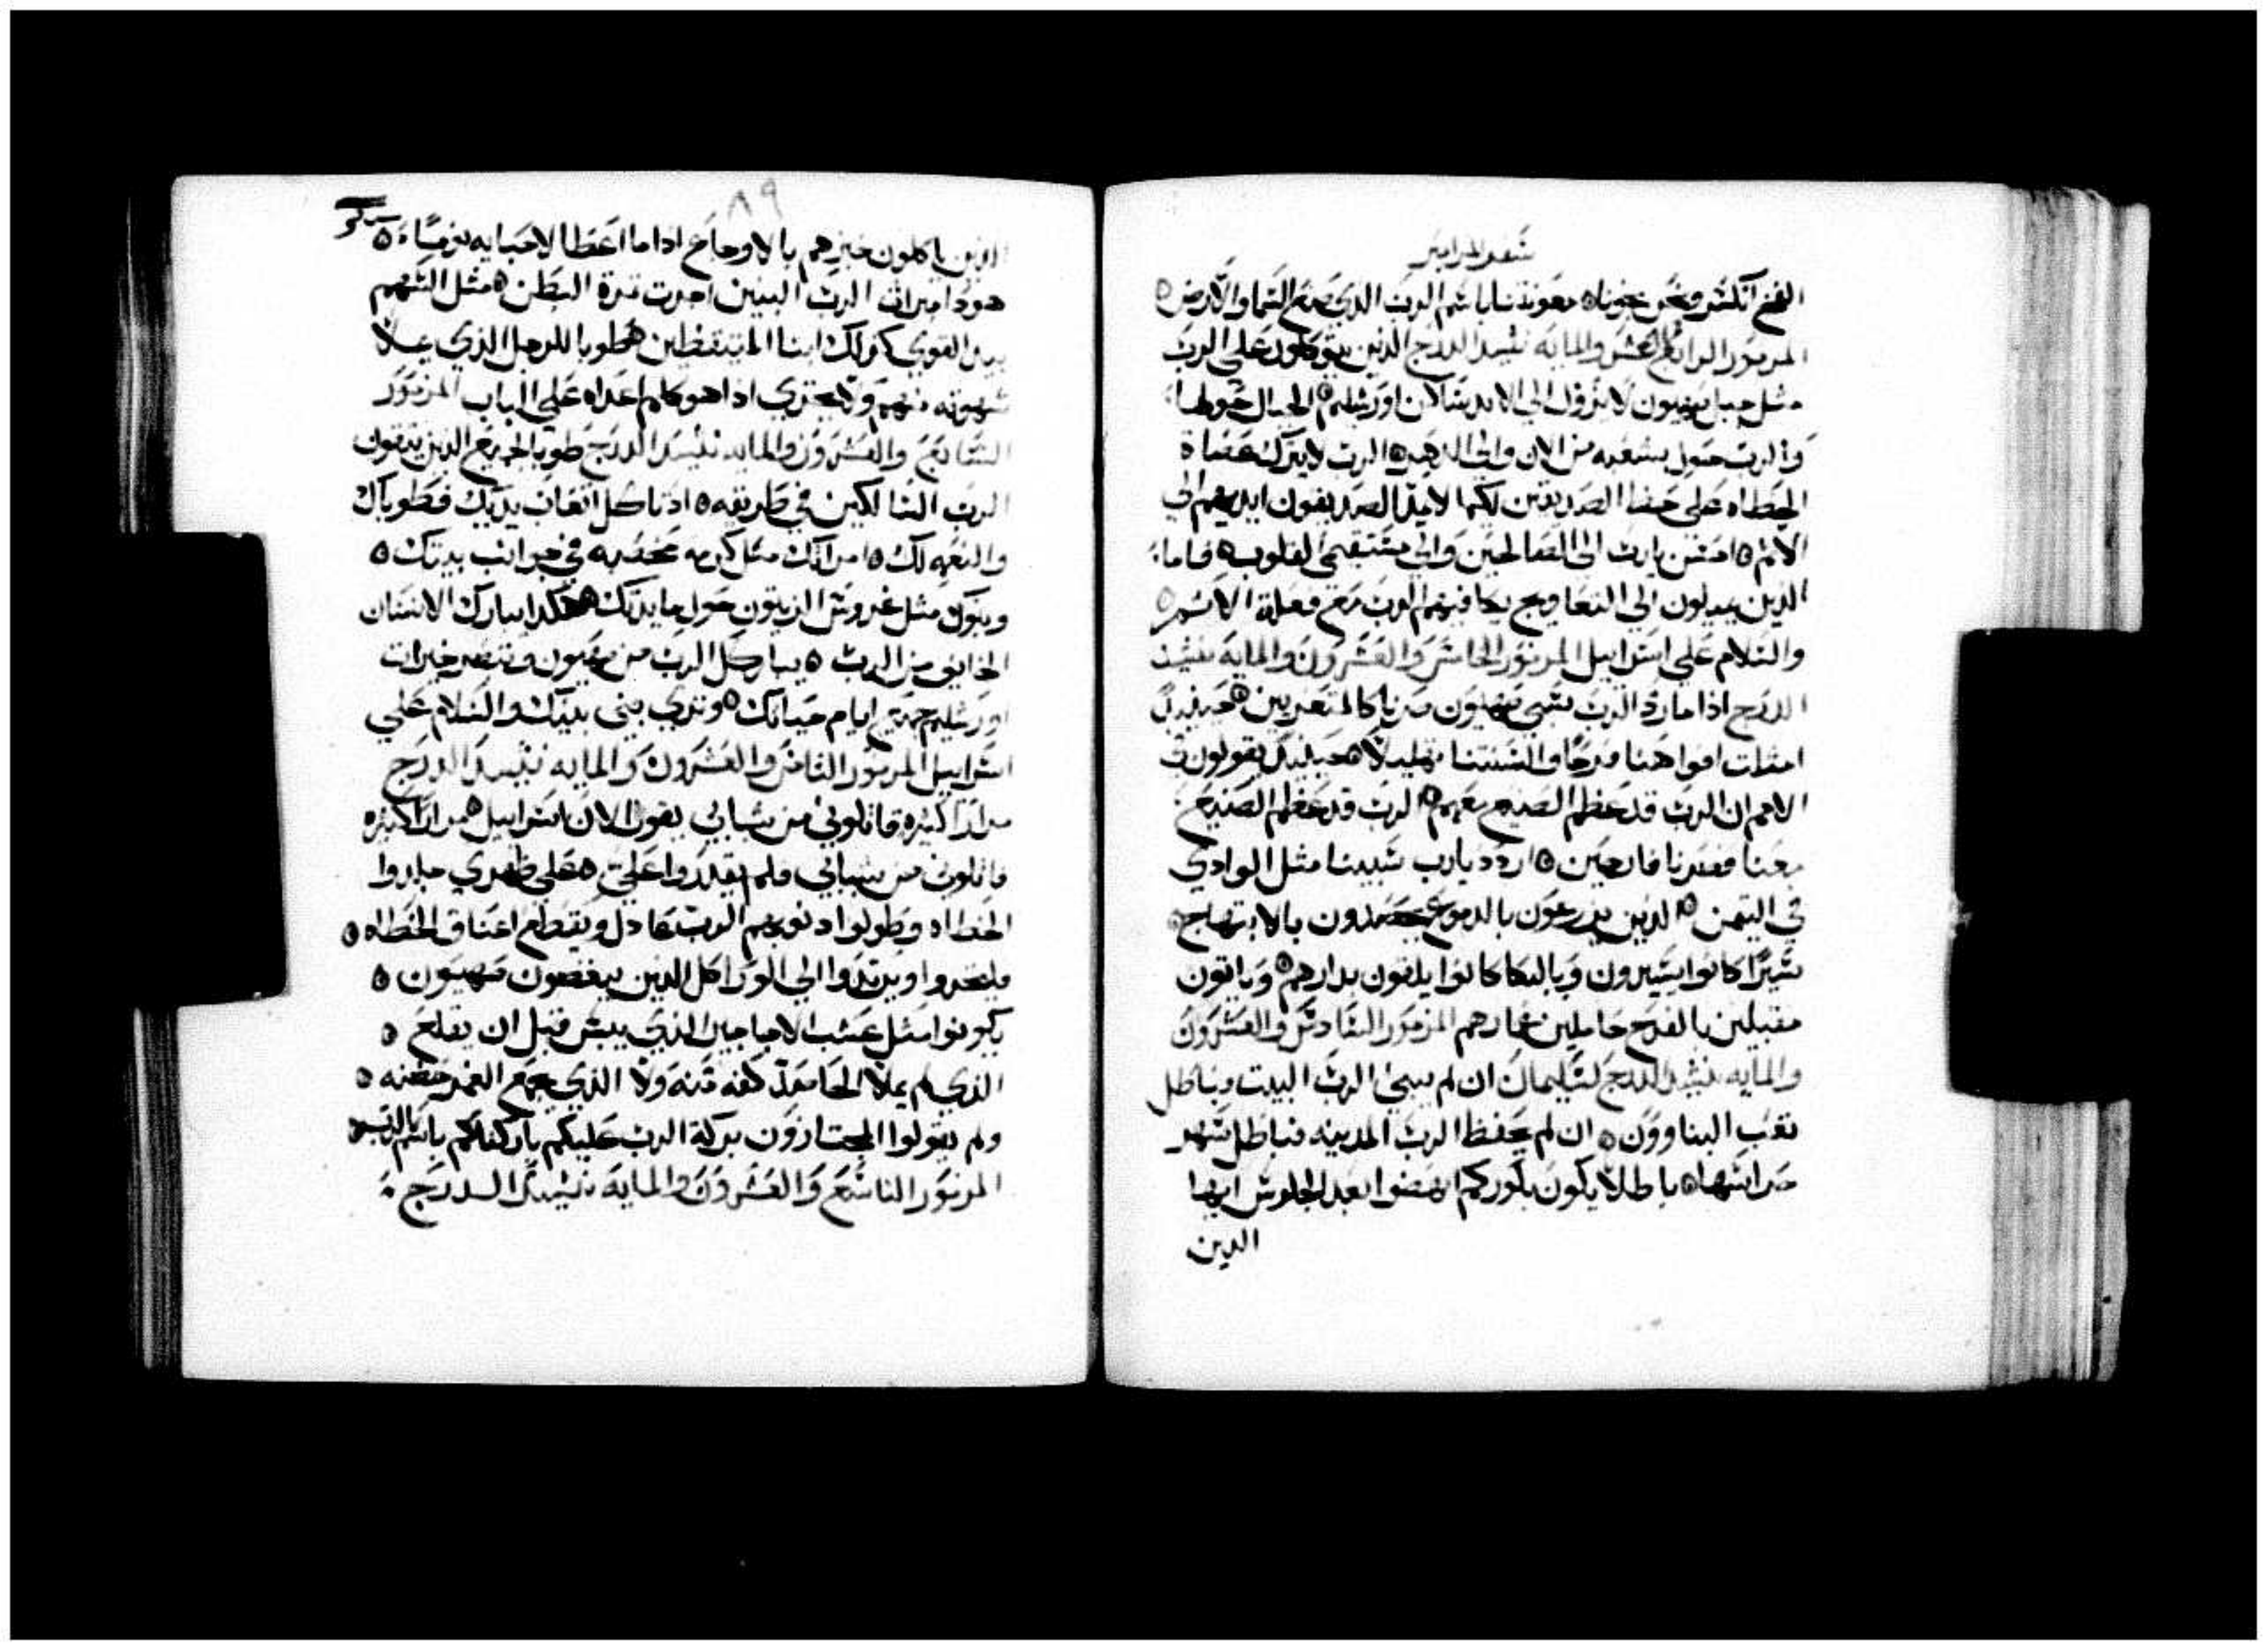 سفر المزامير
الفخ انكسر ونحن نجونا معونتنا باسم الرب الذي صنع السما والارض
المزمور الرابع والعشرون والمايه نشيد الدرج الذين يتوكلون على الرب
مثل جبل صهيون لا يزول الى الابد سكان اورشليم الجبال حولها
والرب حول شعبه من الان والى الدهر الرب لا يترك عصاة
الخطاه على حظ الصديقين لكيما لا يمد الصديقون ايديهم الى
الاثم احسن يارب الى الصالحين والى مستقيمي القلوب فاما
الذين يميلون الى التعاويج يحافيهم الرب مع فعلة الاثم
والسلام على اسراييل المزمور الخامس والعشرون والمايه نشيد
الدرج اذا ما رد الرب سبي صهيون صرنا كالمتعزيين حينيذ
امتلت افواهنا فرحا والسنتنا تهليلا حينيذ يقولون في
الامم ان الرب قد عظم الصنيع معهم الرب قد عظم الصنيع
معنا فصرنا فارحين اردد يارب سبينا مثل الوادي
في التيمن الذين يزرعون بالدموع يحصدون بالابتهاج
سيرا كانوا يسيرون وبالبكا كانوا يلقون بدارهم وياتون
مقبلين بالفرح حاملين غمارهم المزمور السادس والعشرون
والمايه نشيد الدرج لسليمان ان لم يبني الرب البيت فباطل
تعب البناوون ان لم يحفظ الرب المدينه فباطل سهر
حراسها باطلا يكون بكوركم انهضوا بعد الجلوس ايها
الدين
٨٩
الذين ياكلون خبزهم بالاوجاع اذا ما اعطا لاحبايه نوما
هودا ميراث الرب البنين اجرت تمرة البطن مثل السهم
بيد القوي كذلك ابنا المتيقظين طوبا للرجل الذي يملا
شهوته منهم ولا يخزي اذا هو كلم اعداه على الباب المزمور
السابع والعشرون والمايه نشيد الدرج طوبا لجميع الذين يتقون
الرب السالكين في طريقه اذ تاكل اتعاب يديك فطوباك
والنعمه لك امراتك مثل كرمه مخصبه في جوانب بيتك
وبنوك مثل غروس الزيتون حول مايدتك هكدا يبارك الانسان
الخايف من الرب يباركك الرب من صهيون وتبصر خيرات
اورشليم جميع ايام حياتك وتري بني بنيك والسلام علي
اسراييل المزمور الثامن والعشرون والمايه نشيد الدرج
مرارا كثيره قاتلوني من شبابي يقول الان اسراييل مرارا كثيره
قاتلوني من شبابي ولم يقدروا علي على ظهري جلدوا
الخطاه وطولوا ادنوبهم الرب عادل ويقطع اعناق الخطاه
فليخزوا ويرتدوا الي الورا كل الذين يبغضون صهيون
يكونوا مثل عشب الاجاجير الذي يبس قبل ان يقلع
الذي لم يملا الحاصد كفه منه ولا الذي يجمع الغمر حضنه
ولم يقولوا المجتازون بركة الرب عليكم باركناكم باسم الرب
المزمور التاسع والعشرون والمايه نشيد الدرج